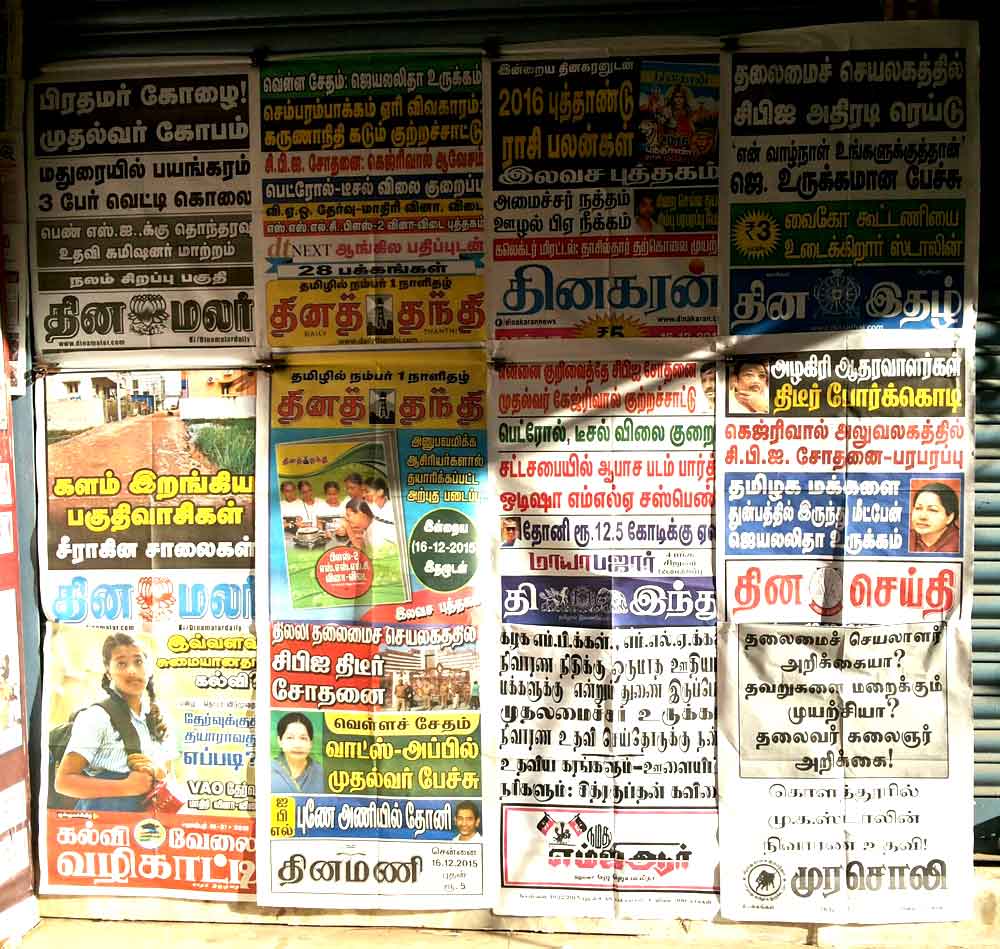 பிரதமர் கோழை!
முதல்வர் கோபம்
மதுரையில் பயங்கரம்
3 பேர் வெட்டி கொலை
பெண் எஸ்.ஐ.,க்கு தொந்தரவு
உதவி கமிஷனர் மாற்றம்
நலம் சிறப்பு பகுதி
தின மலர்
www.dinamalar.com
வெள்ள சேதம்: ஜெயலலிதா உருக்கம்
செம்பரம்பாக்கம் ஏரி விவகாரம்:
கருணாநிதி கடும் குற்றச்சாட்டு
சி.பி.ஐ. சோதனை: கெஜ்ரிவால் ஆவேசம்
பெட்ரோல்-டீசல் விலை குறைப்பு
வி.ஏ.ஓ. தேர்வு-மாதிரி வினா, விடை
எஸ்.எஸ்.எல்.சி. பிளஸ்-2 வினா-விடை புத்தகம்
dt NEXT ஆங்கில பதிப்புடன்
28 பக்கங்கள்
தமிழில் நம்பர் 1 நாளிதழ்
தினத் தந்தி
DAILY THANTHI
இன்றைய தினகரனுடன்
2016 புத்தாண்டு
ராசி பலன்கள்
இலவச புத்தகம்
அமைச்சர் நத்தம்
ஊழல் பிஏ நீக்கம்
கலெக்டர் மிரட்டல்: தாசில்தார் தற்கொலை முயற்
தினகரன்
dinakarannews
www.dinakaran.c
₹5
தலைமைச் செயலகத்தில்
சிபிஐ அதிரடி ரெய்டு
'என் வாழ்நாள் உங்களுக்குத்தான்'
ஜெ. உருக்கமான பேச்சு
₹3
வைகோ கூட்டணியை
உடைக்கிறார் ஸ்டாலின்
தின இதழ்
களம் இறங்கிய
பகுதிவாசிகள்
சீராகின சாலைகள்
தின மலர்
தமிழில் நம்பர் 1 நாளிதழ்
தினத் தந்தி
அனுபவமிக்க
ஆசிரியர்களால்
தயாரிக்கப்பட்ட
அற்புத படைப்பு
தினத் தந்தி
இன்றைய
(16-12-2015)
இதழுடன்
பிளஸ்-2
எஸ்.எஸ்.எல்.சி
வினா-விடை
இலவச புத்தகம்
என்னை குறிவைத்தே சிபிஐ சோதனை
முதல்வர் கேஜ்ரிவால் குற்றச்சாட்டு
பெட்ரோல், டீசல் விலை குறை
சட்டசபையில் ஆபாச படம் பார்த்
ஒடிஷா எம்எல்ஏ சஸ்பெண்
தோனி ரூ.12.5 கோடிக்கு ஏல
மாயா பஜார்
தி இந்து
அழகிரி ஆதரவாளர்கள்
திடீர் போர்க்கொடி
கெஜ்ரிவால் அலுவலகத்தில்
சி.பி.ஐ. சோதனை-பரபரப்பு
தமிழக மக்களை
துன்பத்தில் இருந்து மீட்பேன்
ஜெயலலிதா உருக்கம்
தின செய்தி
இவ்வளவு
சுமையானதா
கல்வி?
தேர்வுக்கு
தயாராவது
எப்படி?
VAO தேர்வு
மாதிரி வினா-விடை
கல்வி வேலை
வழிகாட்டி
தில்லி தலைமைச் செயலகத்தில்
சிபிஐ திடீர்
சோதனை
வெள்ளச் சேதம்
வாட்ஸ்-அப்பில்
முதல்வர் பேச்சு
ஐபிஎல்
புணே அணியில் தோனி
தினமணி
சென்னை
16.12.2015
புதன்
ரூ.5
கழக எம்.பி.க்கள்., எம்.எல்.ஏ.க்க
நிவாரண நிதிக்கு ஒருமாத ஊதிய
மக்களுக்கு என்றும் துணை இருப்பே
முதலமைச்சர் உருக்க
நிவாரண உதவி செய்தோருக்கு நன்
உதவிய கரங்களும்-ஊளையிட்
நரிகளும்: சித்ரகுப்தன் கவிதை
நமது
எம்.ஜி.ஆர்
தலைமைச் செயலாளர்
அறிக்கையா?
தவறுகளை மறைக்கும்
முயற்சியா?
தலைவர் கலைஞர்
அறிக்கை!
கொளத்தூரில்
மு.க.ஸ்டாலின்
நிவாரண உதவி!
முரசொலி